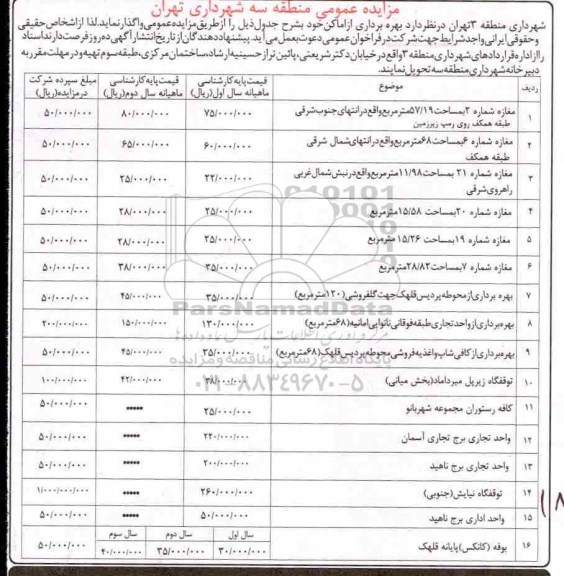 مزایده عمومی منطقه سه شهرداری تهران
شهرداری منطقه ۳تهران درنظردارد بهره برداری ازاماکن خود بشرح جدول ذیل را ازطریق مزایده عمومی واگذارنماید.لذا ازاشخاص حقیقی
وحقوقی ایرانی واجدشرایط جهت شرکت درفراخوان عمومی دعوت بعمل می آید. پیشنهاددهندگان ازتاریخ انتشارآگهی ده روزفرصت دارنداسناد
راازاداره قراردادهای شهرداری منطقه ۳واقع درخیابان دکترشریعتی،پائین ترازحسینیه ارشاد،ساختمان مرکزی،طبقه سوم تهیه ودرمهلت مقرربه
دبیرخانه شهرداری منطقه سه تحویل نمایند.
ردیف موضوع قیمت پایه کارشناسی ماهیانه سال اول(ریال) قیمت پایه کارشناسی ماهیانه سال دوم(ریال) مبلغ سپرده شرکت درمزایده(ریال)
۱ مغازه شماره ۲بمساحت۵۷/۱۹مترمربع واقع درانتهای جنوب شرقی طبقه همکف روی رمپ زیرزمین ۷۵/۰۰۰/۰۰۰ ۸۰/۰۰۰/۰۰۰ ۵۰/۰۰۰/۰۰۰
۲ مغازه شماره ۶بمساحت۶۸مترمربع واقع درانتهای شمال شرقی طبقه همکف ۶۰/۰۰۰/۰۰۰ ۶۵/۰۰۰/۰۰۰ ۵۰/۰۰۰/۰۰۰
۳ مغازه شماره ۲۱ بمساحت۱۱/۹۸مترمربع واقع درنبش شمال غربی راهروی شرقی ۲۲/۰۰۰/۰۰۰ ۲۵/۰۰۰/۰۰۰ ۵۰/۰۰۰/۰۰۰
۴ مغازه شماره ۲۰بمساحت ۱۵/۵۸مترمربع ۲۵/۰۰۰/۰۰۰ ۲۸/۰۰۰/۰۰۰ ۵۰/۰۰۰/۰۰۰
۵ مغازه شماره ۱۹بمساحت ۱۵/۲۶مترمربع ۲۵/۰۰۰/۰۰۰ ۲۸/۰۰۰/۰۰۰ ۵۰/۰۰۰/۰۰۰
۶ مغازه شماره ۷بمساحت۲۸/۸۲مترمربع ۳۵/۰۰۰/۰۰۰ ۳۸/۰۰۰/۰۰۰ ۵۰/۰۰۰/۰۰۰
۷ بهره برداری ازمحوطه پردیس قلهک جهت گلفروشی(۱۲۰مترمربع) ۳۵/۰۰۰/۰۰۰ ۴۵/۰۰۰/۰۰۰ ۵۰/۰۰۰/۰۰۰
۸ بهره برداری ازواحدتجاری طبقه فوقانی نانوایی امانیه(۶۸مترمربع) ۱۳۰/۰۰۰/۰۰۰ ۱۵۰/۰۰۰/۰۰۰ ۲۰۰/۰۰۰/۰۰۰
۹ بهره برداری ازکافی شاپ واغذیه فروشی محوطه پردیس قلهک(۶۸مترمربع) ۳۵/۰۰۰/۰۰۰ ۴۵/۰۰۰/۰۰۰ ۵۰/۰۰۰/۰۰۰
۱۰ توقفگاه زیرپل میرداماد(بخش میانی) ۳۸/۰۰۰/۰۰۰ ۴۲/۰۰۰/۰۰۰ ۱۰۰/۰۰۰/۰۰۰
۱۱ کافه رستوران مجموعه شهربانو ۲۵/۰۰۰/۰۰۰ ***** ۵۰/۰۰۰/۰۰۰
۱۲ واحد تجاری برج تجاری آسمان ۲۲۰/۰۰۰/۰۰۰ ***** ۵۰/۰۰۰/۰۰۰
۱۳ واحد تجاری برج ناهید ۲۰۰/۰۰۰/۰۰۰ ***** ۵۰/۰۰۰/۰۰۰
۱۴ توقفگاه نیایش(جنوبی) ۲۶۰/۰۰۰/۰۰۰ ***** ۱/۰۰۰/۰۰۰/۰۰۰
۱۵ واحد اداری برج ناهید ۵۰/۰۰۰/۰۰۰ ***** ۵۰/۰۰۰/۰۰۰
۱۶ بوفه (کانکس)پایانه قلهک سال اول ۳۰/۰۰۰/۰۰۰ سال دوم ۳۵/۰۰۰/۰۰۰ سال سوم ۴۰/۰۰۰/۰۰۰ ۵۰/۰۰۰/۰۰۰
ParsNamadData
پایگاه اطلاع رسانی مناقصه و مزایده
۰۲۱-۸۸۳۴۹۶۷۰-۵